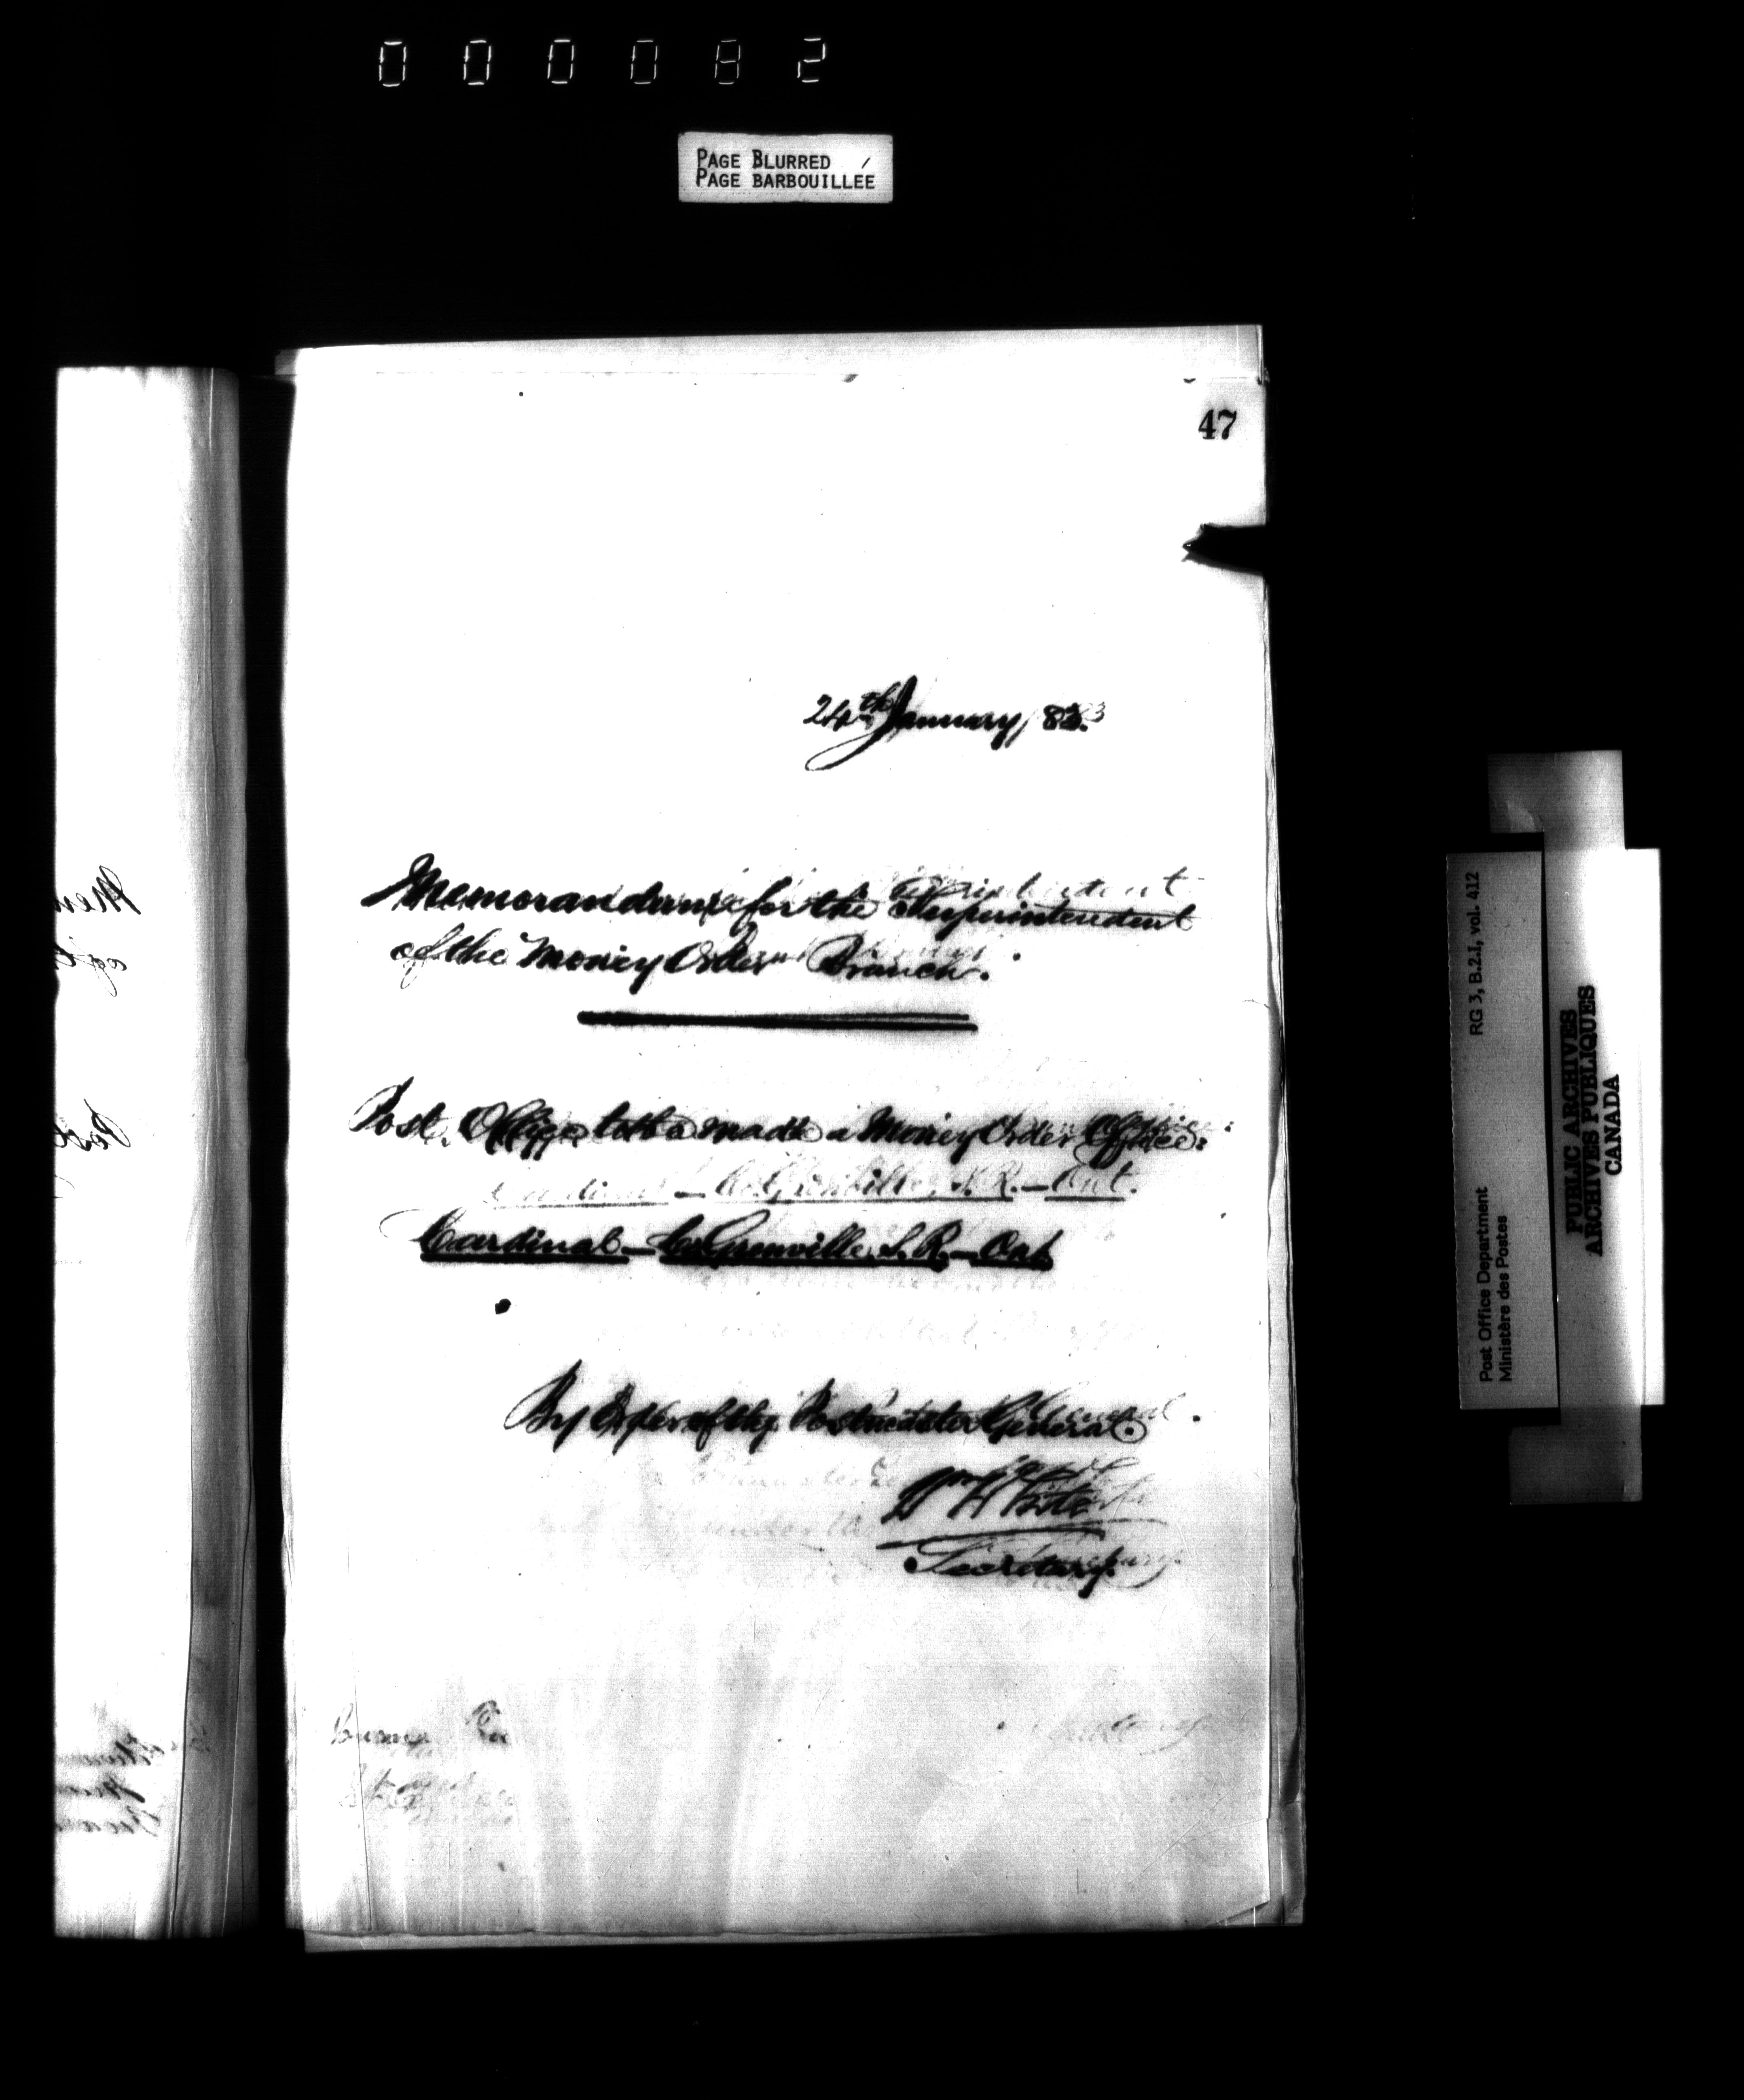 000082
PAGE BLURRED
PAGE BARBOUILLÉE
47
24th January, 83.
Memorandum for the Superintendent
of the Money Order Branch.
Post Office to be made a Money Order Office:
Cardinal – Co. Grenville, S. R. – Ont.
By Order of the Postmaster General.
W H
Secretary.
RG 3, B.2.1, vol. 412
Post Office Department
Ministère des Postes
PUBLIC ARCHIVES
ARCHIVES PUBLIQUES
CANADA